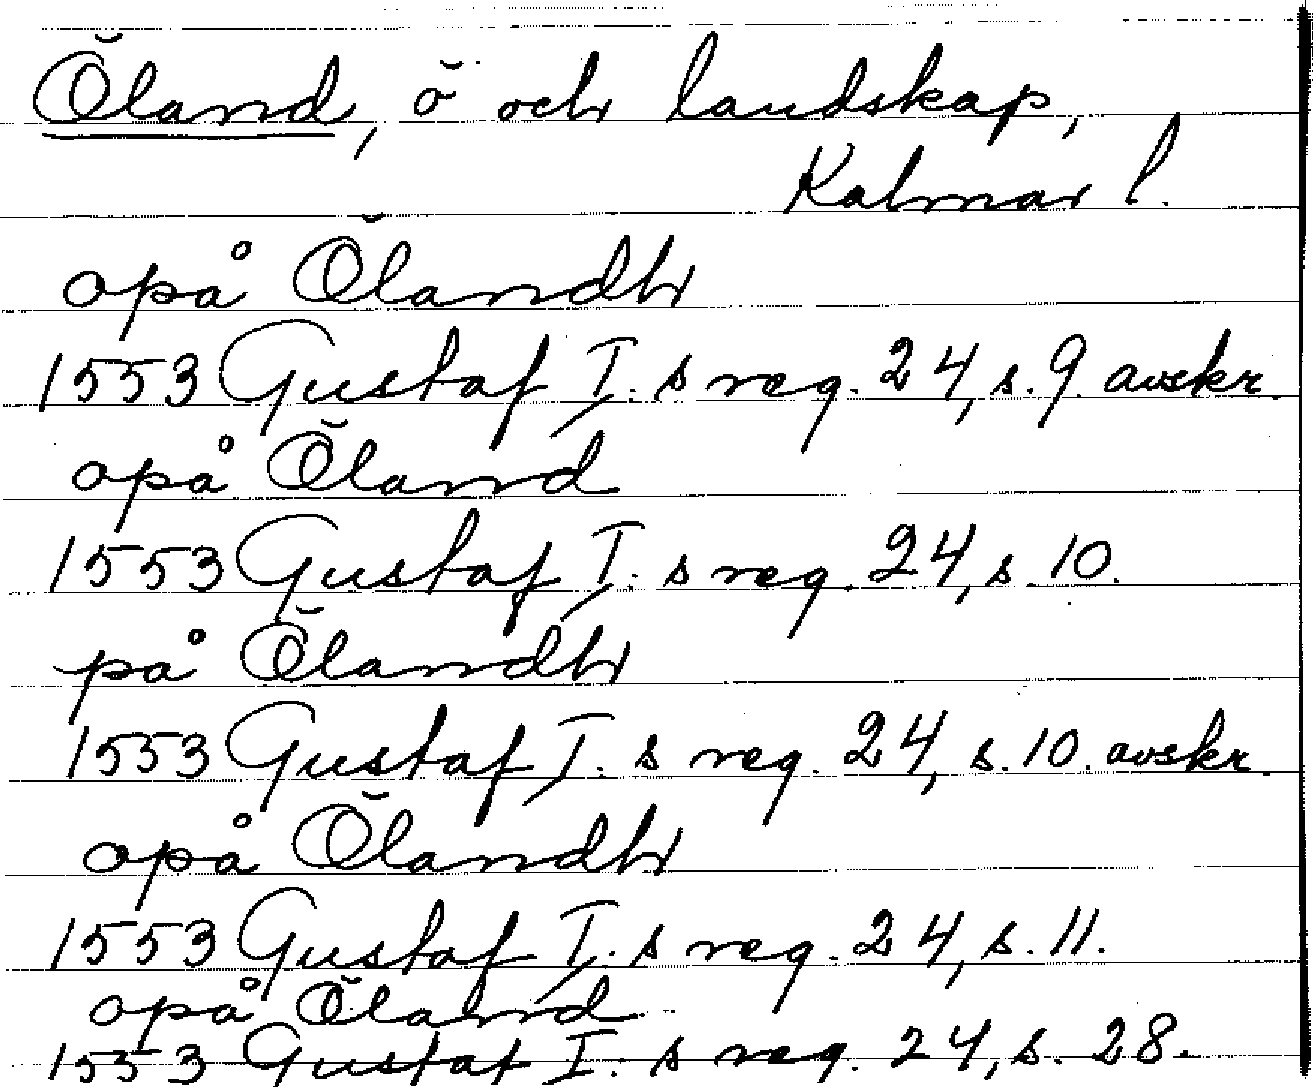 Öland, ö och landskap,
Kalmar l.
opå Ölandh
1553 Gustaf I. s reg. 24, s. 9. avskr.
opå Öland
1553 Gustaf I. s reg. 24, s. 10.
på Ölandh
1553 Gustaf I. s reg. 24, s. 10. avskr.
opå Ölandh
1553 Gustaf I. s reg. 24, s. 11.
opå Öland
1553 Gustaf I. s reg. 24, s. 28.